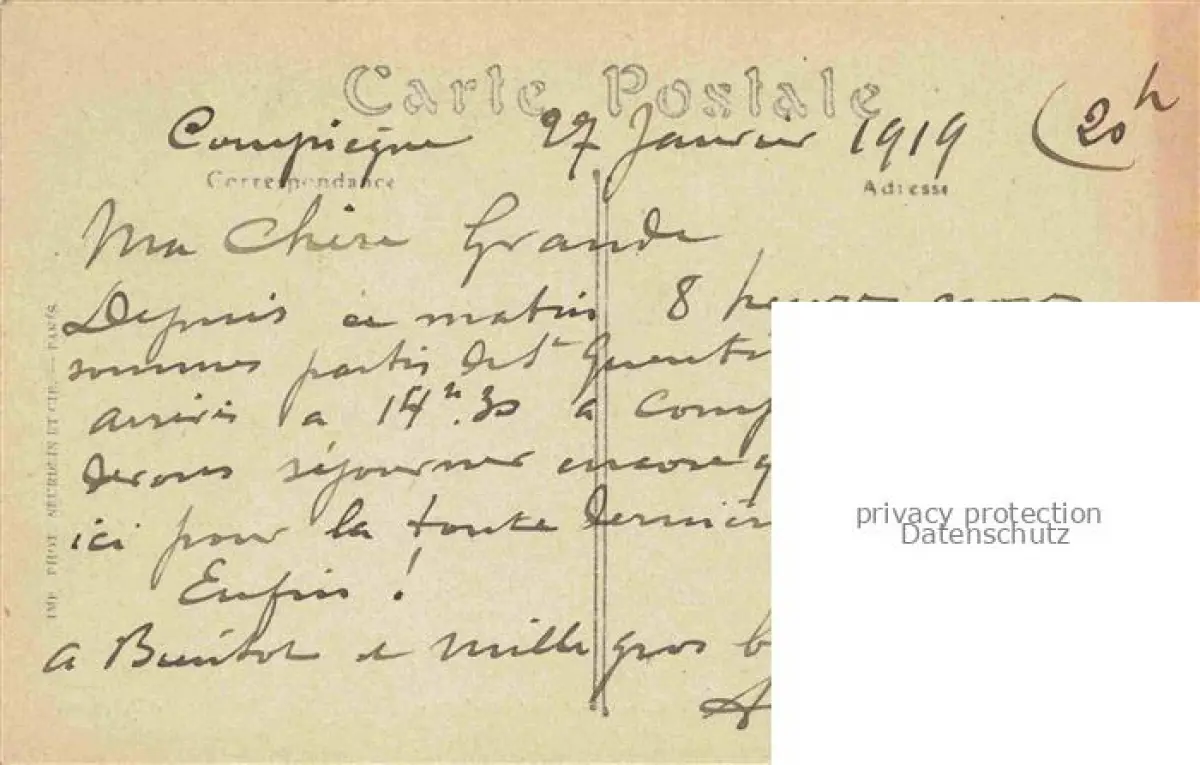 Carte Postale
Compiègne 27 Janvier 1919 (20h
Correspondance
Adresse
Ma Chère Grande
Depuis ce matin 8 heures nous
sommes partis de St Quenti
arrivés a 14h.30 a Comp
devons séjourner encore q
ici pour la toute dernièr
Enfin !
a Bientot et mille gros b
A
IMP. PHOT. NEURDEIN ET CIE. — PARIS.
privacy protection
Datenschutz